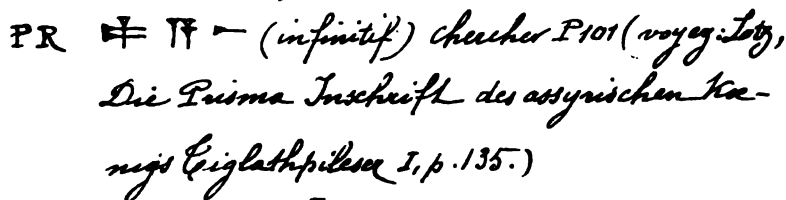 PR (infinitif) chercher P101 (voyez: Lotz,
Die Prisma Inschrift des assyrischen Koe-
nigs Tiglathpileser I, p. 135.)